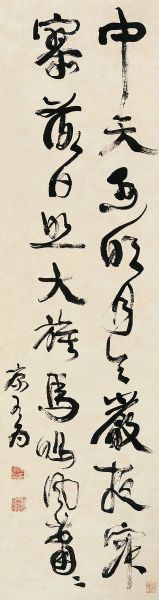 中天懸明月令嚴夜寂
寥落日照大旗馬鳴風蕭々
康有為